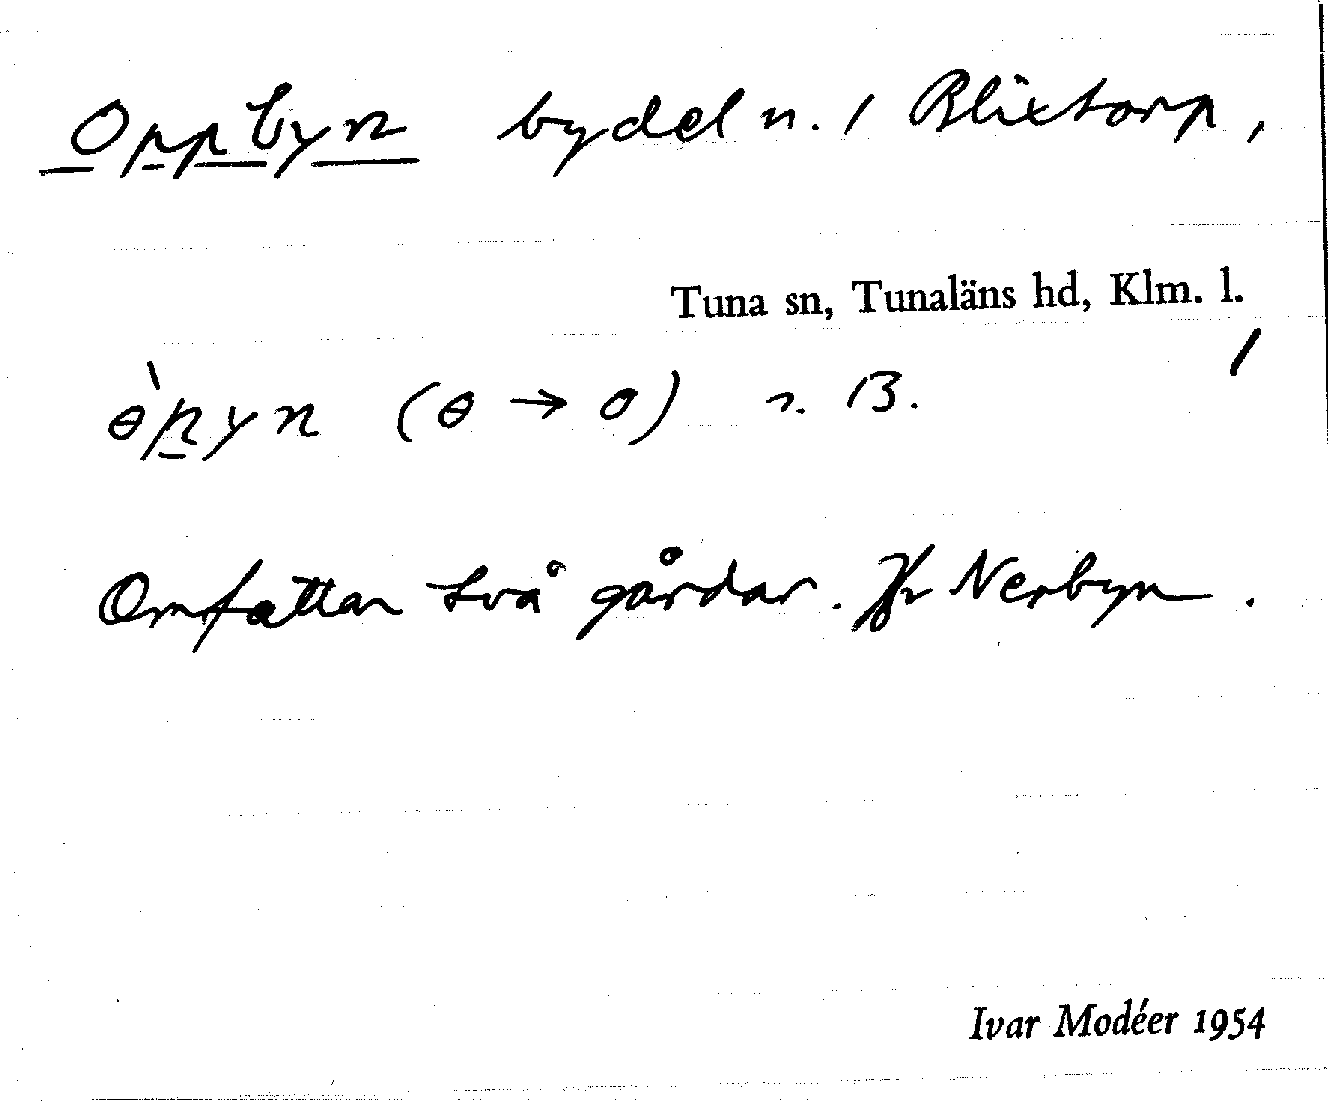 Oppbyn bydel n. / Blixtorp,
Tuna sn, Tunaläns hd, Klm. l.
/
ɵ̀pyn (ɵ → o) n. B.
Omfattar två gårdar. Jfr Nerbyn.
Ivar Modéer 1954